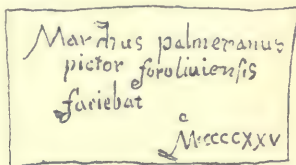 Marchus palmeranus
pictor foroliuienſis
faciebat
c
MCCCCXXV